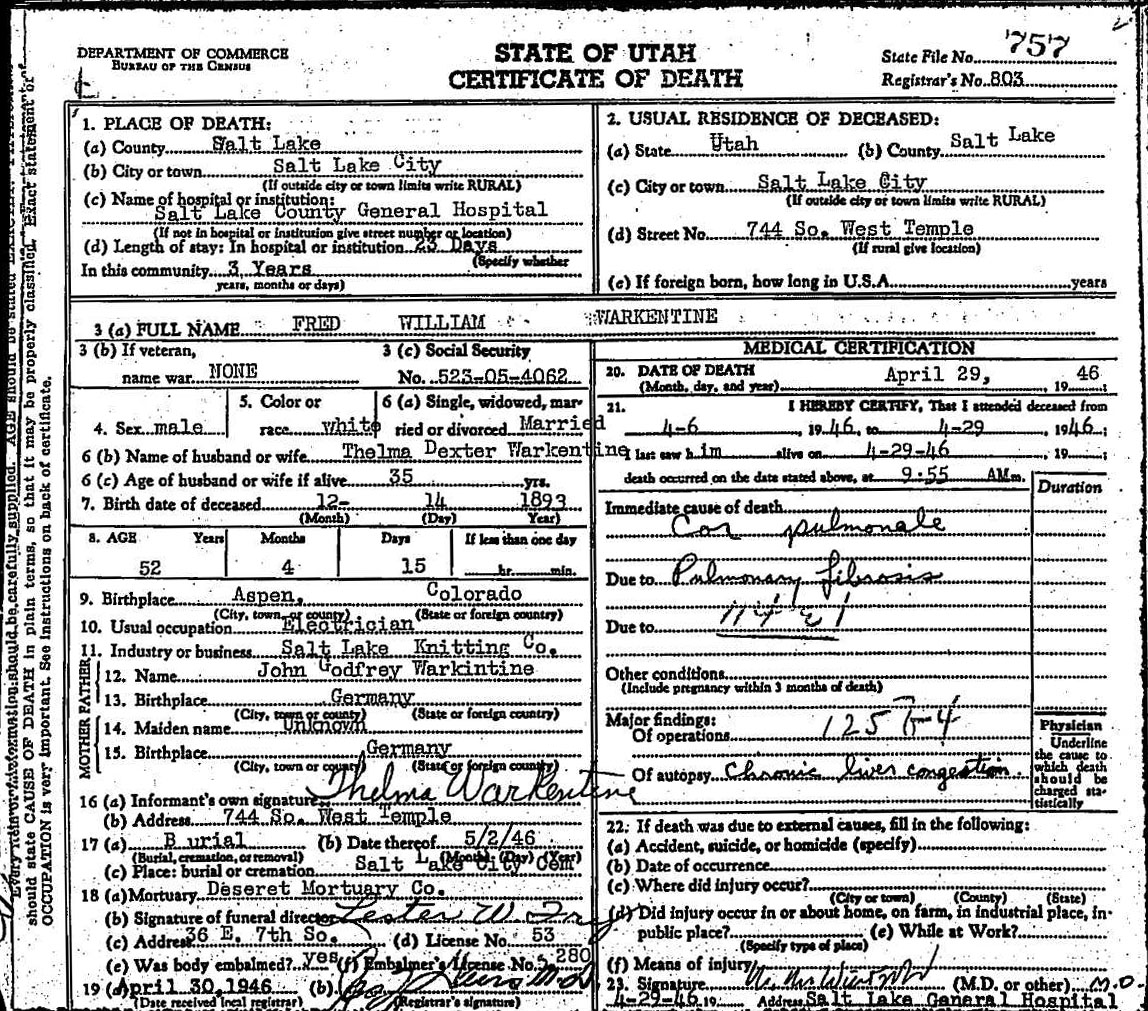 DEPARTMENT OF COMMERCE
BUREAU OF THE CENSUS
STATE OF UTAH
CERTIFICATE OF DEATH
State File No. 757
Registrar's No. 803
1. PLACE OF DEATH:
(a) County Salt Lake
(b) City or town Salt Lake City
(If outside city or town limits write RURAL)
(c) Name of hospital or institution:
Salt Lake County General Hospital
(If not in hospital or institution give street number or location)
(d) Length of stay: In hospital or institution 23 Days
(Specify whether
In this community 3 Years
years, months or days)
2. USUAL RESIDENCE OF DECEASED:
(a) State Utah (b) County Salt Lake
(c) City or town Salt Lake City
(If outside city or town limits write RURAL)
(d) Street No. 744 So. West Temple
(If rural give location)
(e) If foreign born, how long in U.S.A. years
3 (a) FULL NAME FRED WILLIAM WARKENTINE
3 (b) If veteran, 3 (c) Social Security
name war NONE No. 523-05-4062
4. Sex male 5. Color or race white 6 (a) Single, widowed, married or divorced Married
6 (b) Name of husband or wife Thelma Dexter Warkentine
6 (c) Age of husband or wife if alive 35 yrs.
7. Birth date of deceased 12- 14 1893
(Month) (Day) Year)
8. AGE Years Months Days If less than one day
52 4 15 hr. min.
9. Birthplace Aspen, Colorado
(City, town or county) (State or foreign country)
10. Usual occupation Electrician
11. Industry or business Salt Lake Knitting Co.
FATHER
12. Name John Godfrey Warkintine
13. Birthplace Germany
(City, town or county) (State or foreign country)
MOTHER
14. Maiden name Unknown
15. Birthplace Germany
(City, town or county) (State or foreign country)
16 (a) Informant's own signature Thelma Warkentine
(b) Address 744 So. West Temple
17 (a) Burial (b) Date thereof 5/2/46
(Burial, cremation, or removal) (Month) (Day) (Year)
(c) Place: burial or cremation Salt Lake City Cem
18 (a) Mortuary Deseret Mortuary Co.
(b) Signature of funeral director Lester W.
(c) Address 36 E. 7th So. (d) License No. 53
(e) Was body embalmed? yes (f) Embalmer's License No. 280
19 (a) April 30, 1946 (b) M.D.
(Date received local registrar) (Registrar's signature)
MEDICAL CERTIFICATION
20. DATE OF DEATH
(Month, day, and year) April 29, 19 46
21. I HEREBY CERTIFY, That I attended deceased from
4-6 1946, to 4-29 1946;
I last saw him alive on 4-29-46 19 ;
death occurred on the date stated above, at 9:55 AM m.
Duration
Immediate cause of death
Cor pulmonale
Due to Pulmonary fibrosis
Due to
Other conditions
(Include pregnancy within 3 months of death)
Major findings:
Of operations
Of autopsy Chronic liver congestion.
Physician
Underline
the cause to
which death
should be
charged sta-
tistically
22. If death was due to external causes, fill in the following:
(a) Accident, suicide, or homicide (specify)
(b) Date of occurrence
(c) Where did injury occur?
(City or town) (County) (State)
(d) Did injury occur in or about home, on farm, in industrial place, in-
public place? (e) While at Work?
(Specify type of place)
(f) Means of injury
23. Signature (M.D. or other) M.D.
4-29-46 19 Address Salt Lake General Hospital
should state CAUSE OF DEATH in plain terms, so that it may be properly classified. Exact statement of
OCCUPATION is very important. See instructions on back of certificate.